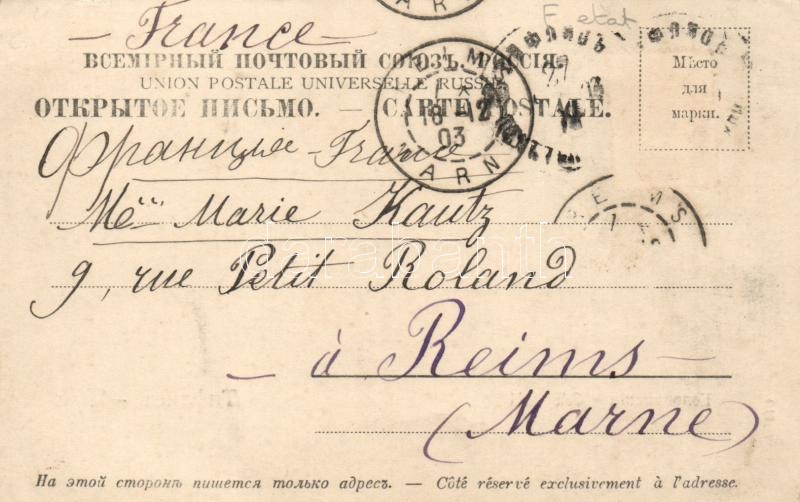 ARN
F etat
— France —
ВСЕМІРНЫЙ ПОЧТОВЫЙ СОЮЗЪ. РОССІЯ.
UNION POSTALE UNIVERSELLE RUSSIE
ОТКРЫТОЕ ПИСЬМО. — CARTE POSTALE.
Мѣсто
для
марки.
18-12
03
ARN
Франція-France
Melle Marie Kautz
9, rue Petit Roland
— à Reims —
(Marne)
EIMS
darabanth
На этой сторонѣ пишется только адресъ. — Côté réservé exclusivement à l'adresse.